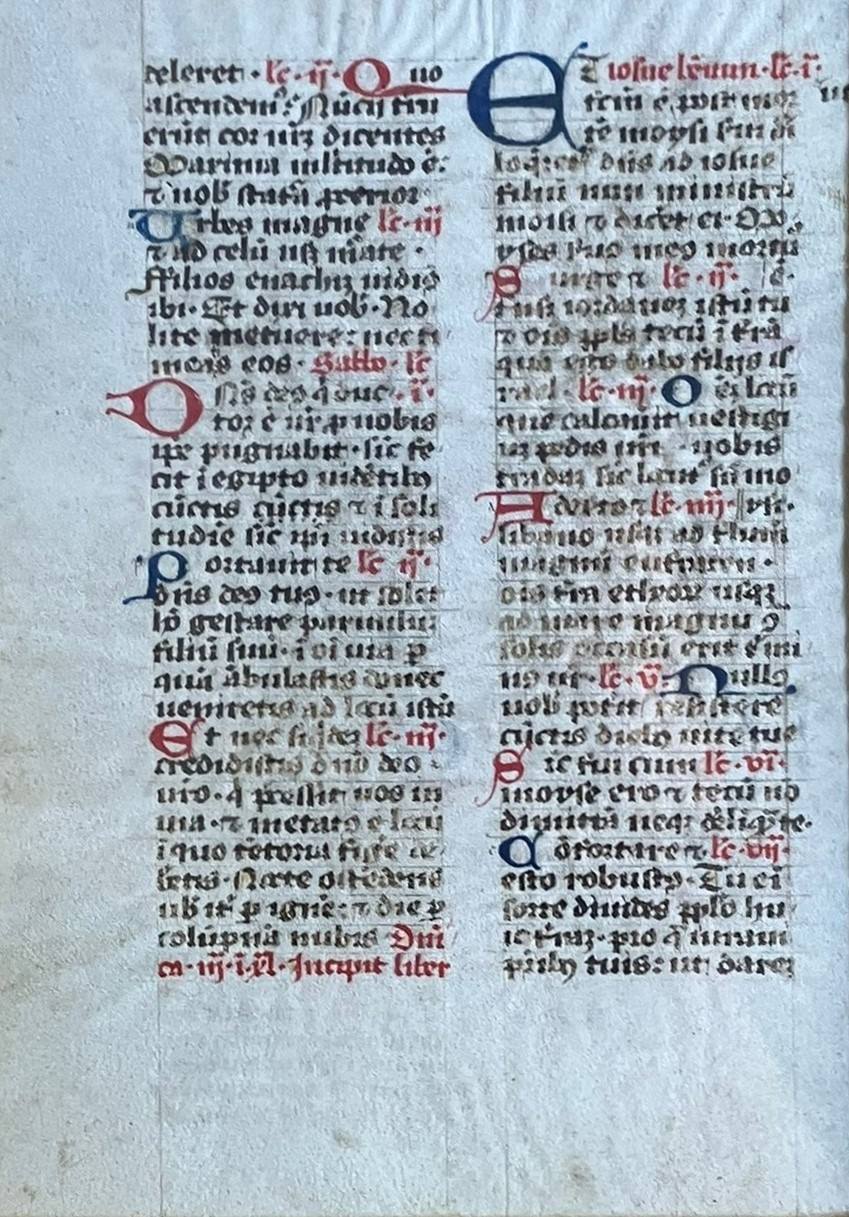 celeret · lc̄ · ij · Quo
ascendemꝰ? Nūcij tru
erūt cor nr̄ꝫ dicentes
Maxima ml̄titudo ē:
⁊ nob̄ statū ꝓcerior
Urbes magne lc̄ · iij
⁊ ad celū usqꝫ mūate ·
Ffilios enachiꝫ uidimꝰ
ibi · Et dixi uob̄ · No
lite metuere: nec ti
meatis eos · Sabbo · lc̄
Dn̄s deꝰ q̄ duc · i ·
tor ē ur̄ ꝓ uobis
ip̄e pugnabit · sic fe
cit ī egipto uidētibꝰ
cūctis ⁊ ī soli
tudīe sic ip̄i uidistis
Portauit te lc̄ · ij ·
dn̄s deꝰ tuꝰ · ut solet
hō gestare paruulū
filiū suū · ī oī uia ꝑ
quā ābulastis donec
ueniretis ad locū istū
Et nec sic lc̄ · iij ·
credidistis dn̄o deo
uro · q̄ p̄cessit uos in
uia · ⁊ metatꝰ ē locū
ī quo tētoria figere de
betis · Nocte ostēdens
ub̄ it̄ ꝑ ignē: ⁊ die ꝑ
colūpnā nubis Dn̄i
ca · iij · ī · xl · Incipit liber
ET iosue lc̄ · i ·
factū ē post mor
tē moysi serui dn̄i
loqueret̄ dn̄s ad iosue
filiū nun ministrū
moisi ⁊ diceret ei · Mo
yses seruꝰ meꝰ mortuꝰ
Surge ⁊ lc̄ · ij · ē ·
trāsi iordanē istū tu
⁊ oīs ppl̄s tecū ī tr̄ā
quā ego dabo filijs is
rael · lc̄ · iij · Oēꝫ locū
quē calcauit uestigi
uꝫ pedis ur̄i uobis
tradaꝫ sic locutꝰ sū mo
A deserto ⁊ lc̄ · iiij · ysi ·
libano usqꝫ ad fluuiū
magnū eufraten ·
oīs tr̄a etheorꝫ usqꝫ
ad mare magnū ꝯ
solis occasū erit t̄mi
nꝰ ur̄ · lc̄ · v · Nullꝰ
uob̄ poterit resistere
cūctis diebꝰ uite tue
Sicut fui cum lc̄ · vi ·
moyse ero ⁊ tecū nō
dimittā neqꝫ derelīquā te ·
Cōfortare ⁊ lc̄ · vij ·
esto robustꝰ · Tu eī
sorte diuides pplo hu
ic tr̄aꝫ · pro q̄ iuraui
patribꝰ tuis: ut dareꝫ